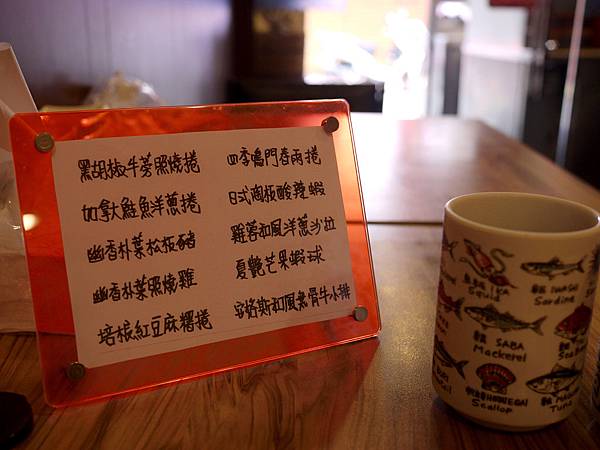 黑胡椒牛蒡照燒捲
加拿鮭魚洋蔥捲
幽香朴葉松板豬
幽香朴葉照燒雞
培根紅豆麻糬捲
四季鳴門春雨捲
日式陶板酸辣蝦
雞蓉和風洋蔥沙拉
夏艷芒果蝦球
安格斯和風無骨牛小排
IKA
Squid
IWASHI
Sardine
SABA
Mackerel
HOTATEGAI
Scallop
Tuna